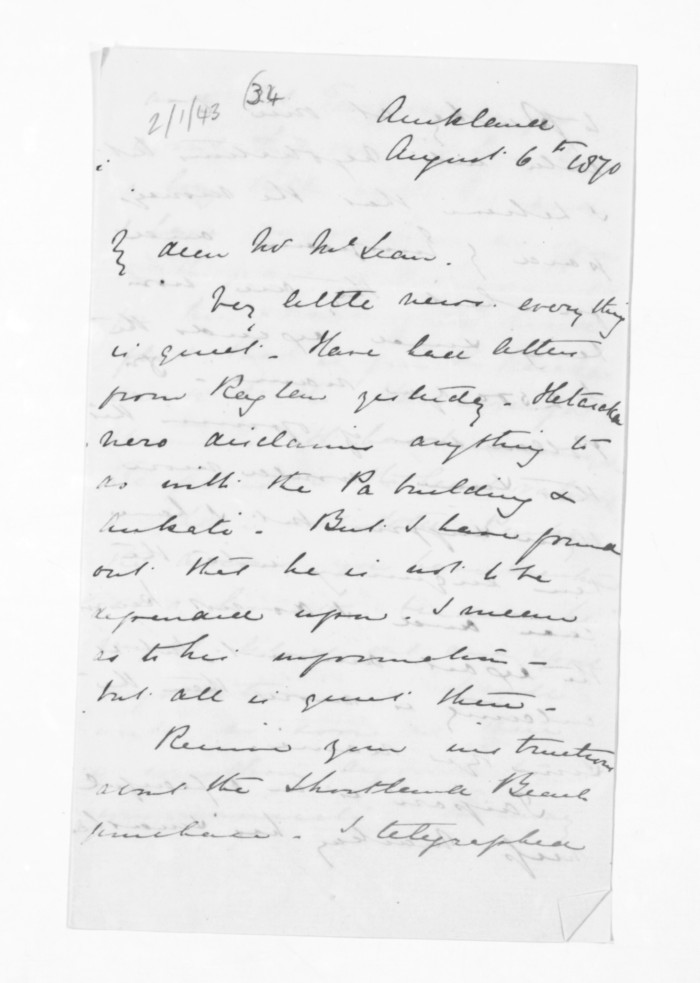 2/1/43 (34
Auckland
August 6th 1870
My dear Mr McLean.
Very little news. everything
is quiet. Have had letters
from Raglan yesterday. Hetaraka
nero disclaims anything to
do with the Pa building &
Aukati. But I have found
out that he is not to be
depended upon. I mean
as to his information -
but all is quiet there.
Receive your instructions
about the Shortland Beach
purchase. I telegraphed